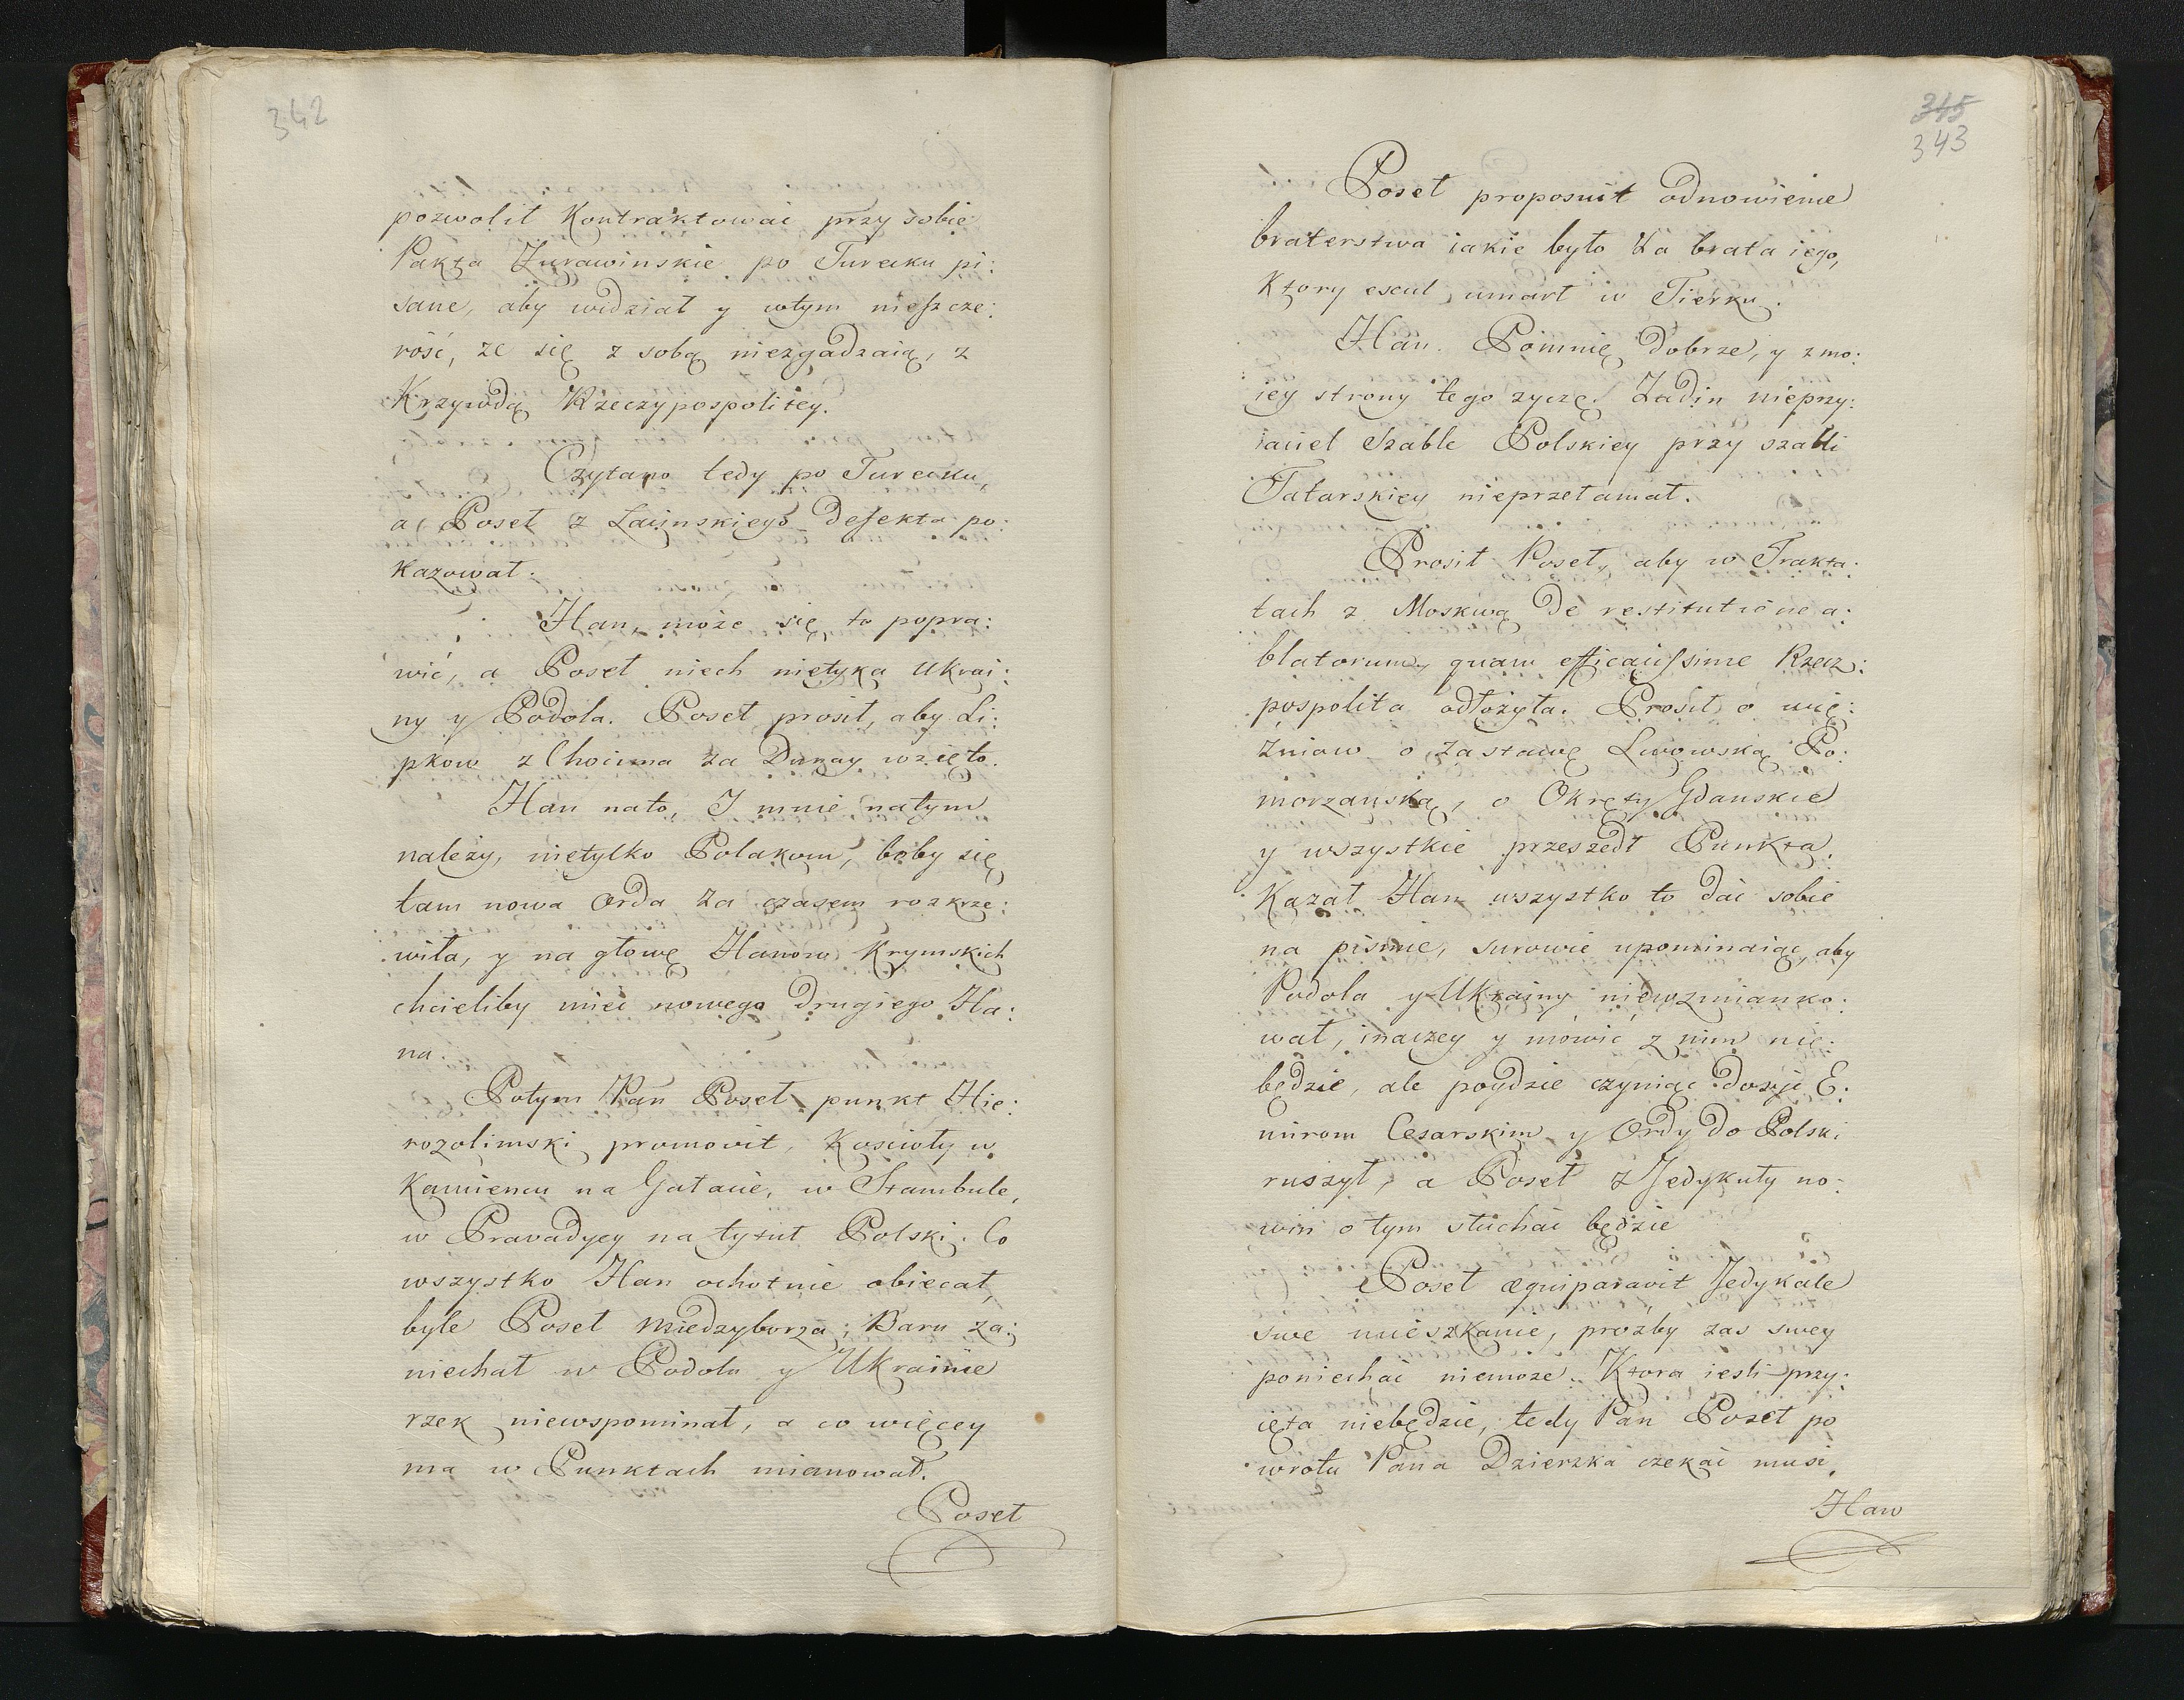 342
pozwolił Kontraktować przy sobie
Pakta Żurawinskie po Turecku pi:
sane, aby widział y wtym nieszcze:
rość, ze się z sobą niezgadzaią, z
Krzywdą Rzeczypospolitey.
Czytano tedy po Turecku,
a Poseł z Łacinskiego defekta po:
kazował.
Han, może się to popra:
wić, a Poseł niech nietyka Ukrai:
ny y Podola. Poseł prosił, aby Li:
pkow z Chocima za Dunay wzięto.
Han nato, I mnie natym
należy, nietylko Polakom, boby się
tam nowa Orda za czasem rozkrze:
wiła, y na głowę Hanow Krymskich
chcieliby mieć nowego drugiego Ha:
na.
Potym Pan Poseł punkt Hie:
rozolimski promovit, Kościoły w
Kamiencu na Gałacie, w Stambule,
w Prawadycy na tytuł Polski. Co
wszystko Han ochotnie obiecał,
byle Poseł Międzyborza, Baru za:
niechał w Podolu y Ukrainie
rzek niewspominał, a co więcey
ma w Punktach mianował.
Poseł
345
343
Poseł proposuit odnowienie
braterstwa iakie było za brata iego,
Ktory exul umarł w Tierku.
Han. Pomnię dobrze, y zmo:
iey strony tego zyczę. Żadin nieprzy:
iaciel Szable Polskiey przy szabli
Tatarskiey nieprzełamał.
Prosił Poseł, aby w Trakta:
tach z Moskwą de restitutione a:
blatorum, quam efficacissime Rzecz:
pospolita odłożyła. Prosił o wię:
źniow o zastawę Lwowską Po:
morzanską, o Okręty Gdanskie
y wszystkie przeszedł Punkta.
Kazał Han wszystko to dać sobie
na piśmie, surowie upominaiąc, aby
Podola y Ukrainy niewzmianko:
wał, inaczey y mowić z nim nie:
będzie, ale poydzie czyniąc dosyć E:
mirom Cesarskim y Ordy do Polski
ruszył, a Poseł z Jedykuły no:
win o tym słuchać będzie
Poseł æquiparavit Jedykale
swe mieszkanie, prozby zas swey
poniechać niemoze. Ktora iesli przy:
ięta niebędzie, tedy Pan Poseł po
wrotu Pana Dzierzka czekać musi.
Han